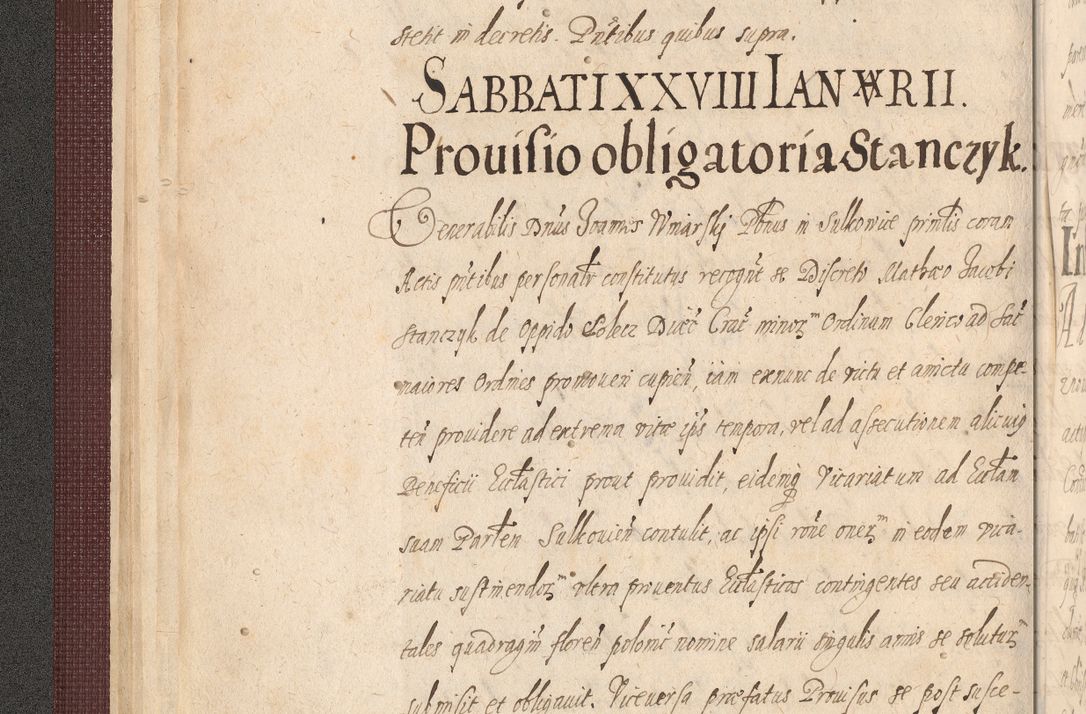 stetit in decretis. Pn̄tibus quibus supra.
SABBATI XXVIII IANVARII.
Prouisio obligatoria Stanczyk.
Venerabilis Dn̄us Joannes Wniarskj Pb̄nus in Sulkowice prin̄tis coram
Actis pn̄tibus personalr̄ constitutus recogn̄t se Discreto Mathæo Jacobi
Stanczyk de Oppido Solecz Diœc̄ Crac̄ minorꝫ Ordinum Clerico ad Sac̄
maiores Ordines promoueri cupien̄, iam exnunc de victu et amictu compe-
ten̄ prouidere ad extrema vitæ ip̄s tempora, vel ad assecutionem alicuiꝯ
Beneficii Ecl̄astici prout prouidit, eidemqꝫ Vicariatum ad Ecl̄am
suam Parl̄em Sulkouien̄ contulit, ac ipsi ron̄e onerꝫ in eodem vica-
riatu sustinendorꝫ vltra prouentus Ecl̄asticos contingentes seu acciden-
tales quadragin̄ floren̄ polonic̄ nomine salarii singulis annis se soluturꝫ
submisit et obligauit. Viceuersa præfatus Prouisus se post susce-